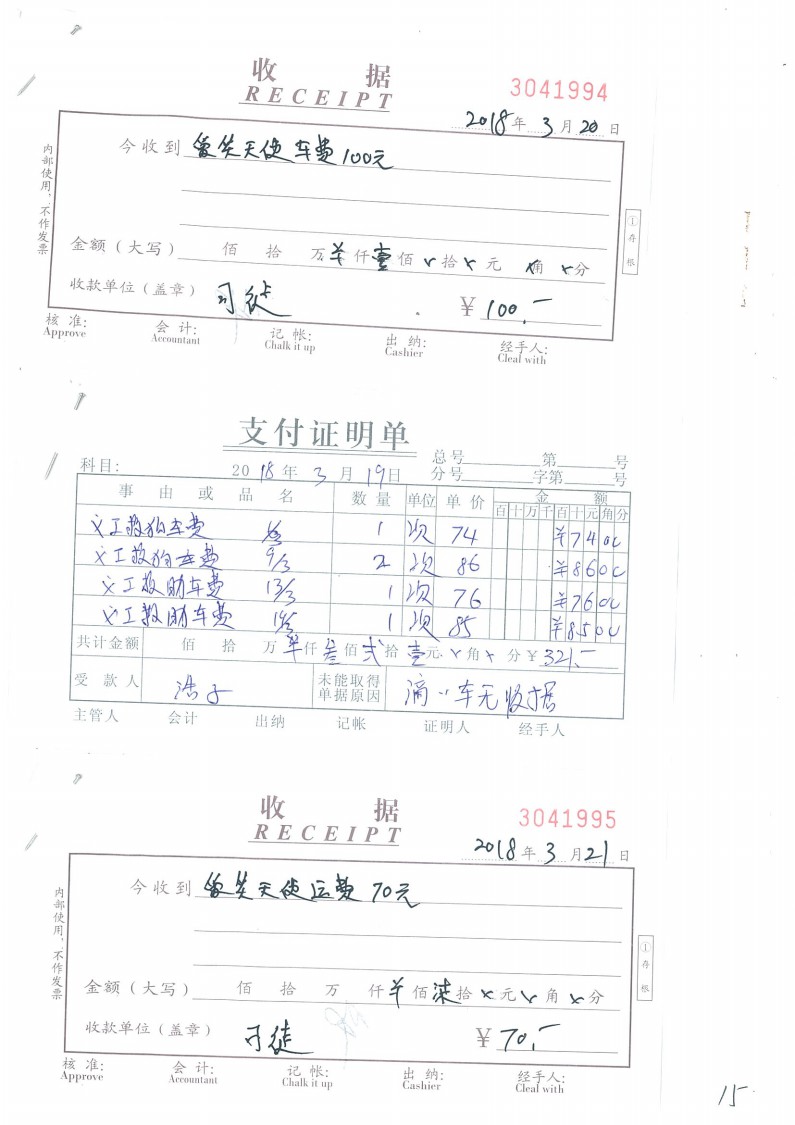 收 据
RECEIPT
3041994
2018年3月20日
今收到 天使车费100元
内部使用,不作发票
①存根
金额(大写) 佰 拾 万 仟壹佰 拾 元 角 分
收款单位(盖章) 司徒 ¥100.-
核 准: 会 计: 记 帐: 出 纳: 经手人:
Approve Accountant Chalk it up Cashier Cleal with
支付证明单
总号 第 号
科目: 2018年3月19日 分号 字第 号
事 由 或 品 名 数 量 单位 单 价 金 额
百十万千百十元角分
义工救狗车费 1 次 74 ¥7400
义工救狗车费 9/3 2 次 86 ¥8600
义工救助车费 13/3 1 次 76 ¥7600
义工救助车费 1 次 85 ¥8500
共计金额 佰 拾 万 仟叁佰弍拾壹元 角 分 ¥321.-
受 款 人 浩子 未能取得单据原因 滴滴车无收据
主管人 会计 出纳 记帐 证明人 经手人
收 据
RECEIPT
3041995
2018年3月21日
今收到 天使运费70元
内部使用,不作发票
①存根
金额(大写) 佰 拾 万 仟 佰柒拾 元 角 分
收款单位(盖章) 司徒 ¥70.-
核 准: 会 计: 记 帐: 出 纳: 经手人:
Approve Accountant Chalk it up Cashier Cleal with
15